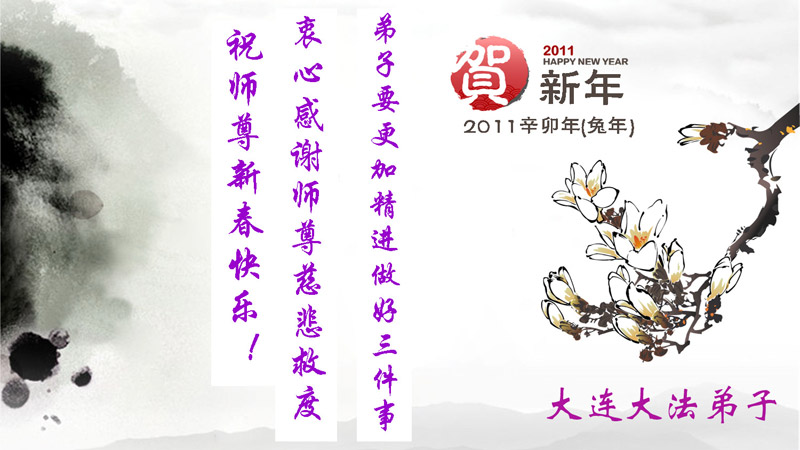 賀
2011
HAPPY NEW YEAR
新年
2011辛卯年(兔年)
弟子要更加精进做好三件事
衷心感谢师尊慈悲救度
祝师尊新春快乐！
大连大法弟子